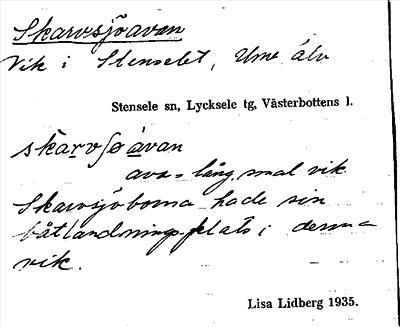 Skarvsjöavan
Vik i Stenselet, Ume älv
Stensele sn, Lycksele tg, Västerbottens l.
skarvʃø ávan
ava = lång, smal vik
Skarvsjöborna hade sin
båtlandningsplats i denna
vik.
Lisa Lidberg 1935.